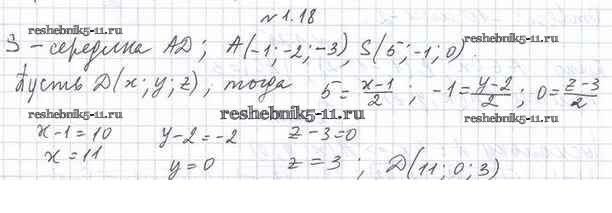 №1.18
reshebnik5-11.ru
S – середина AD; A(-1; -2; -3), S(5; -1; 0)
reshebnik5-11.ru
Пусть D(x; y; z), тогда 5 = (x-1)/2; -1 = (y-2)/2; 0 = (z-3)/2
reshebnik5-11.ru reshebnik5-11.ru reshebnik5-11.ru
x-1=10 y-2=-2 z-3=0
x=11 y=0 z=3; D(11; 0; 3)
reshebnik5-11.ru